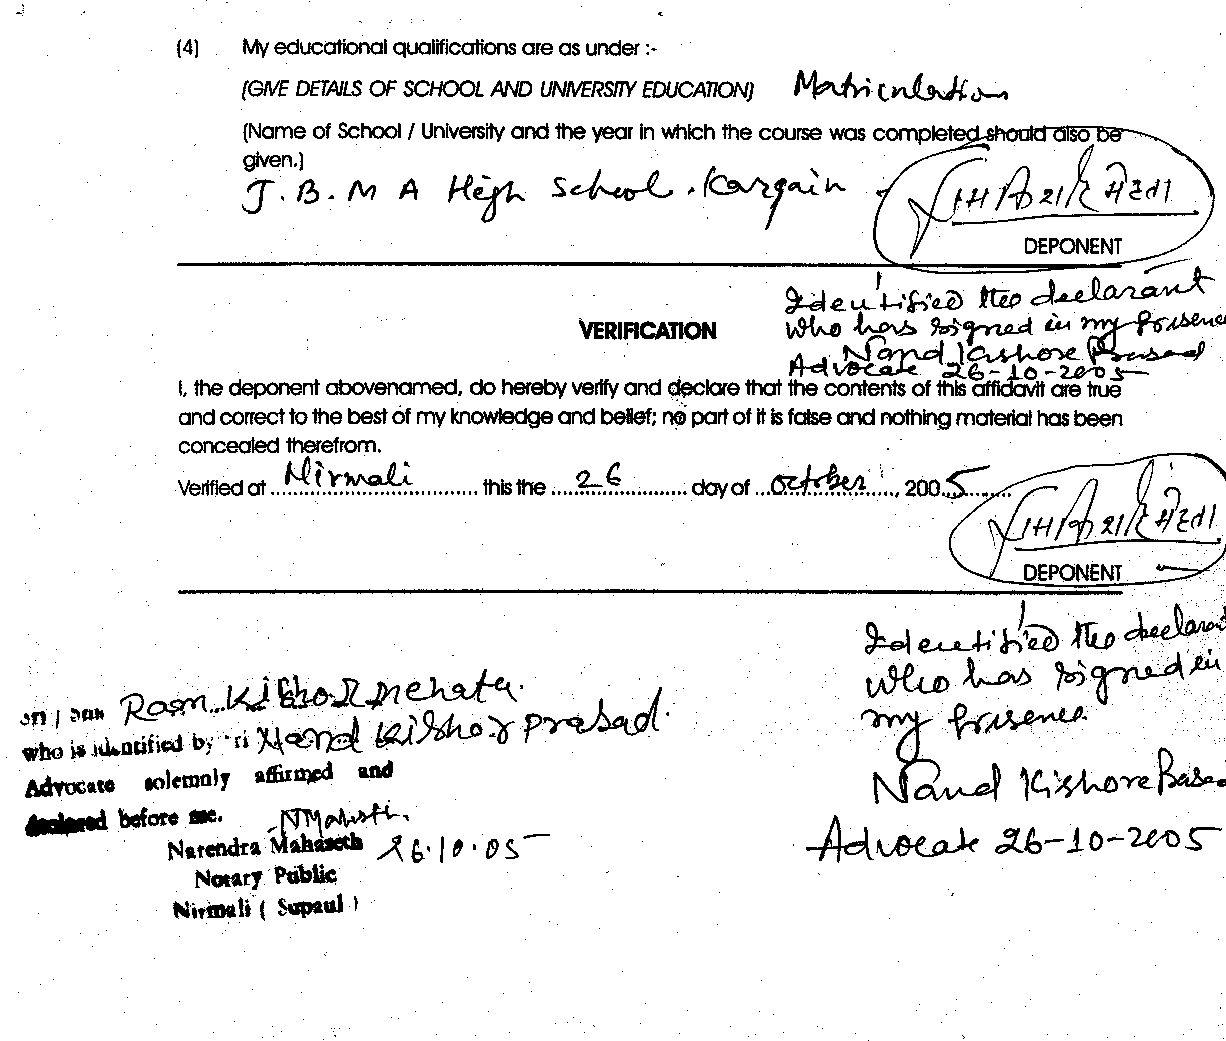 (4) My educational qualifications are as under :-
(GIVE DETAILS OF SCHOOL AND UNIVERSITY EDUCATION) Matriculation
(Name of School / University and the year in which the course was completed should also be
given.)
J. B. M A High School. Kargain
DEPONENT
Identified the declarant
VERIFICATION
who has signed in my presence
Nand Kishore Prasad
Advocate 26-10-2005
I, the deponent abovenamed, do hereby verify and declare that the contents of this affidavit are true
and correct to the best of my knowledge and belief; no part of it is false and nothing material has been
concealed therefrom.
Verified at Nirmali this the 26 day of October, 2005
DEPONENT
Identified the declarant
who has signed in
my presence.
Nand Kishore Prasad
Advocate 26-10-2005
Ram Kishor Mehata.
who is identified by Nand Kishor prasad.
Advocate solemnly affirmed and
declared before me.
Narendra Mahaseth 26.10.05
Notary Public
Nirmali ( Supaul )